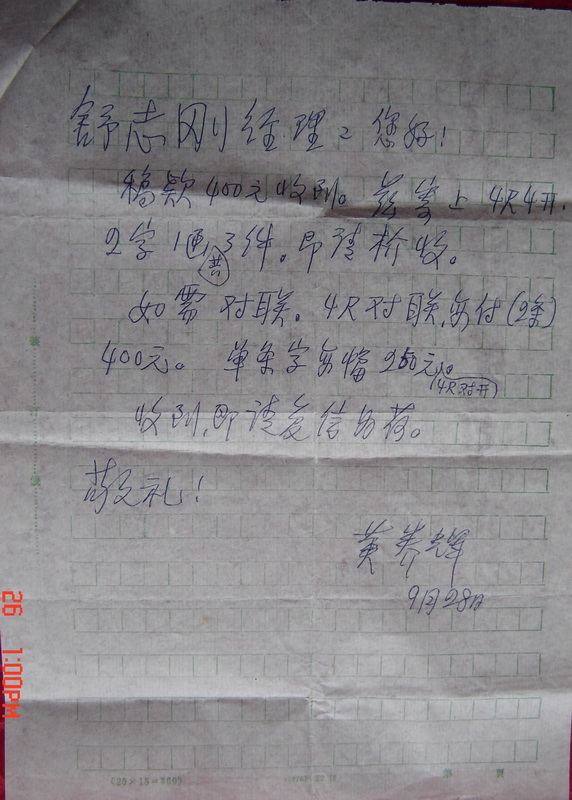 舒志刚经理：您好！
稿款400元收到。兹寄上4尺4开.
2字1画,共3件。即请检收。
如需对联。4尺对联,每付(2条)
400元。单条字每幅250元。(4尺对开)
收到,即请复信为荷。
敬礼！
黄养辉
9月28日
装
(20×15=300)
第 页
26 1:00PM